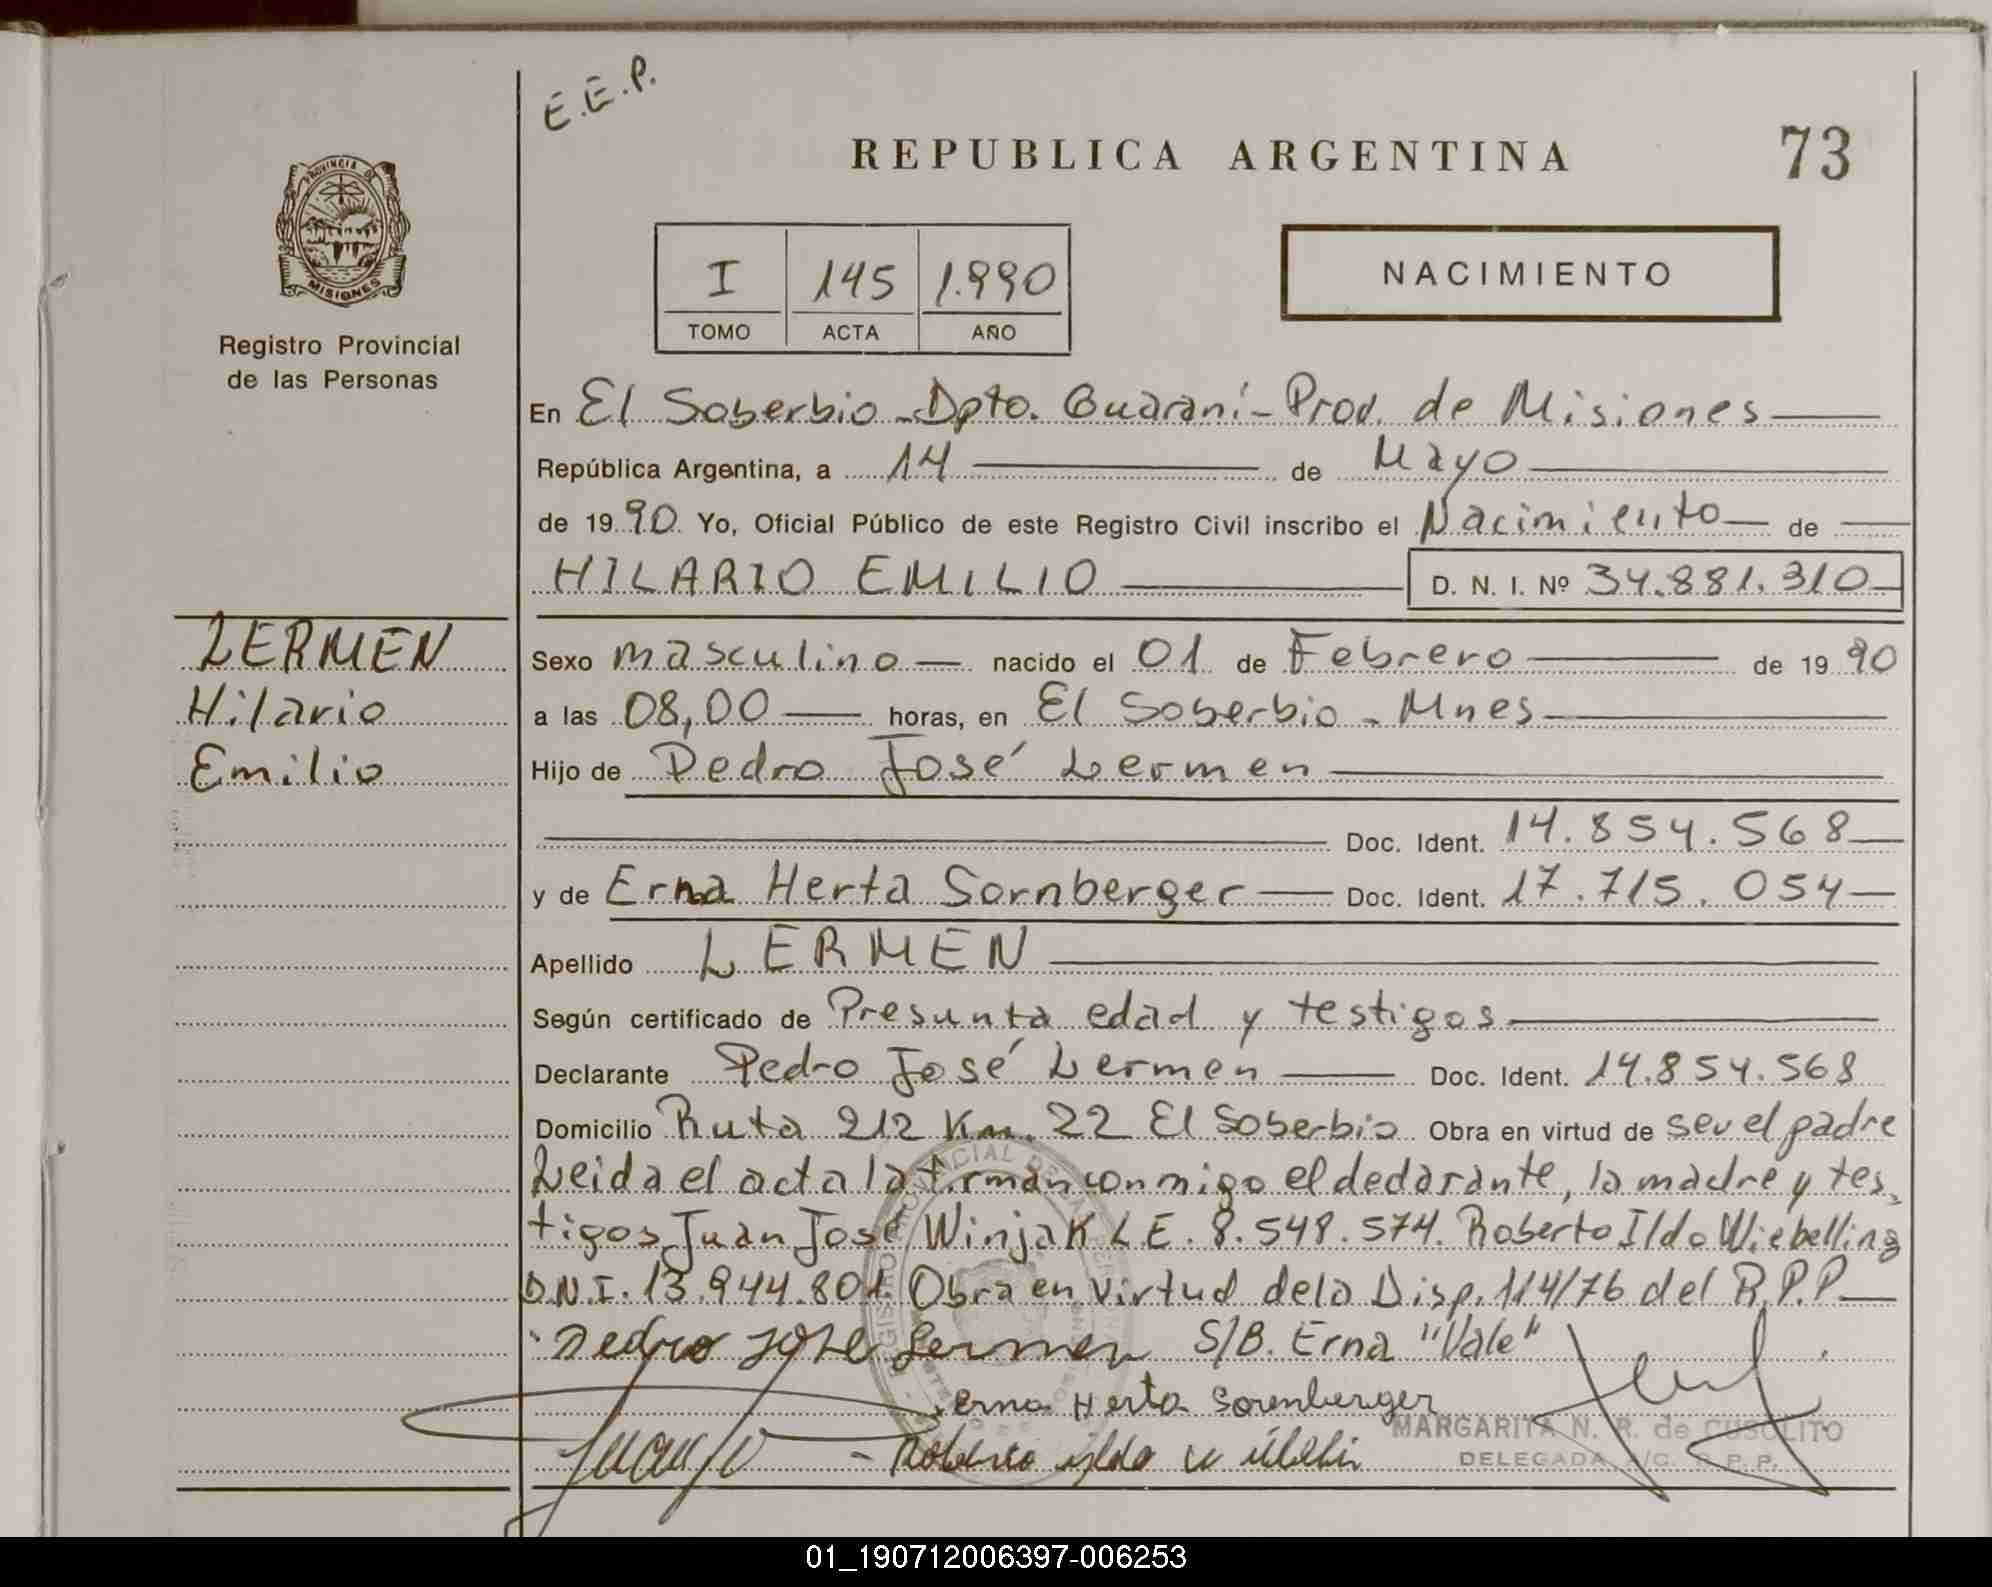 E.E.P.
REPUBLICA ARGENTINA
73
PROVINCIA DE
MISIONES
Registro Provincial
de las Personas
I 145 1.990
TOMO ACTA AÑO
NACIMIENTO
En El Soberbio - Dpto. Guaraní - Prov. de Misiones
República Argentina, a 14 de Mayo
de 1990 Yo, Oficial Público de este Registro Civil inscribo el Nacimiento de
HILARIO EMILIO D. N. I. Nº 34.881.310
LERMEN
Hilario
Emilio
Sexo masculino nacido el 01 de Febrero de 1990
a las 08,00 horas, en El Soberbio - Mnes
Hijo de Pedro José Lermen
Doc. Ident. 14.854.568
y de Erna Herta Sornberger Doc. Ident. 17.715.054
Apellido LERMEN
Según certificado de Presunta edad y testigos
Declarante Pedro José Lermen Doc. Ident. 14.854.568
Domicilio Ruta 212 Km. 22 El Soberbio Obra en virtud de ser el padre
Leida el acta la firman conmigo el declarante, la madre y tes-
tigos Juan José Winjak L.E. 8.548.574. Roberto Ildo Wiebelling
D.N.I. 13.944.801. Obra en virtud de la Disp. 114/76 del R.P.P
Pedro José Lermen S/B. Erna "Vale"
Erna Herta Sorenberger
MARGARITA N. R. de CUSOLITO
DELEGADA A/C. R. P. P.
01_190712006397-006253